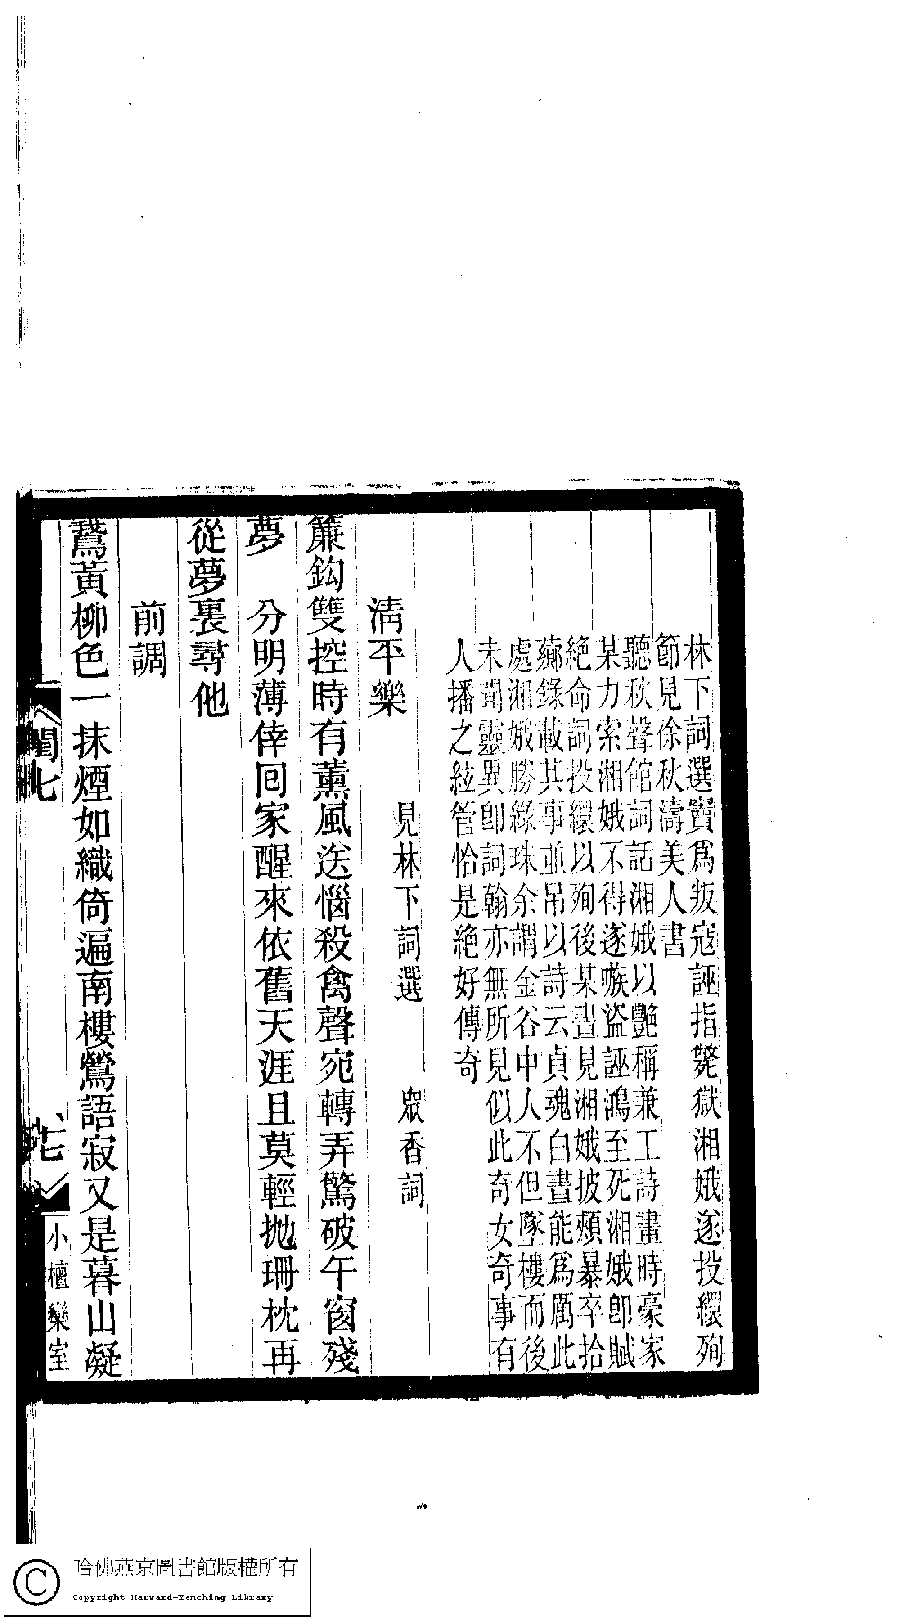 林下詞選竇爲叛寇誣指斃獄湘娥遂投繯殉
節見徐秋濤美人書
聽秋聲館詞話湘娥以艷稱兼工詩畫時豪家
某力索湘娥不得遂嗾盜誣鴻至死湘娥卽賦
絕命詞投繯以殉後某晝見湘娥披頰暴卒拾
錄載其事並吊以詩云貞魂白晝能爲厲此
處湘娥勝綠珠余謂金谷中人不但墜樓而後
未聞靈異卽詞翰亦無所見似此奇女奇事有
人播之絃管恰是絕好傳奇
清平樂 見林下詞選 眾香詞
簾鉤雙控時有薰風送惱殺禽聲宛轉弄驚破午窗殘
夢 分明薄倖囘家醒來依舊天涯且莫輕拋珊枕再
從夢裏尋他
前調
鵞黃柳色一抹煙如織倚遍南樓鶯語寂又是暮山凝
閨七
小檀欒室
哈佛燕京圖書館版權所有
Copyright Harvard-Yenching Library